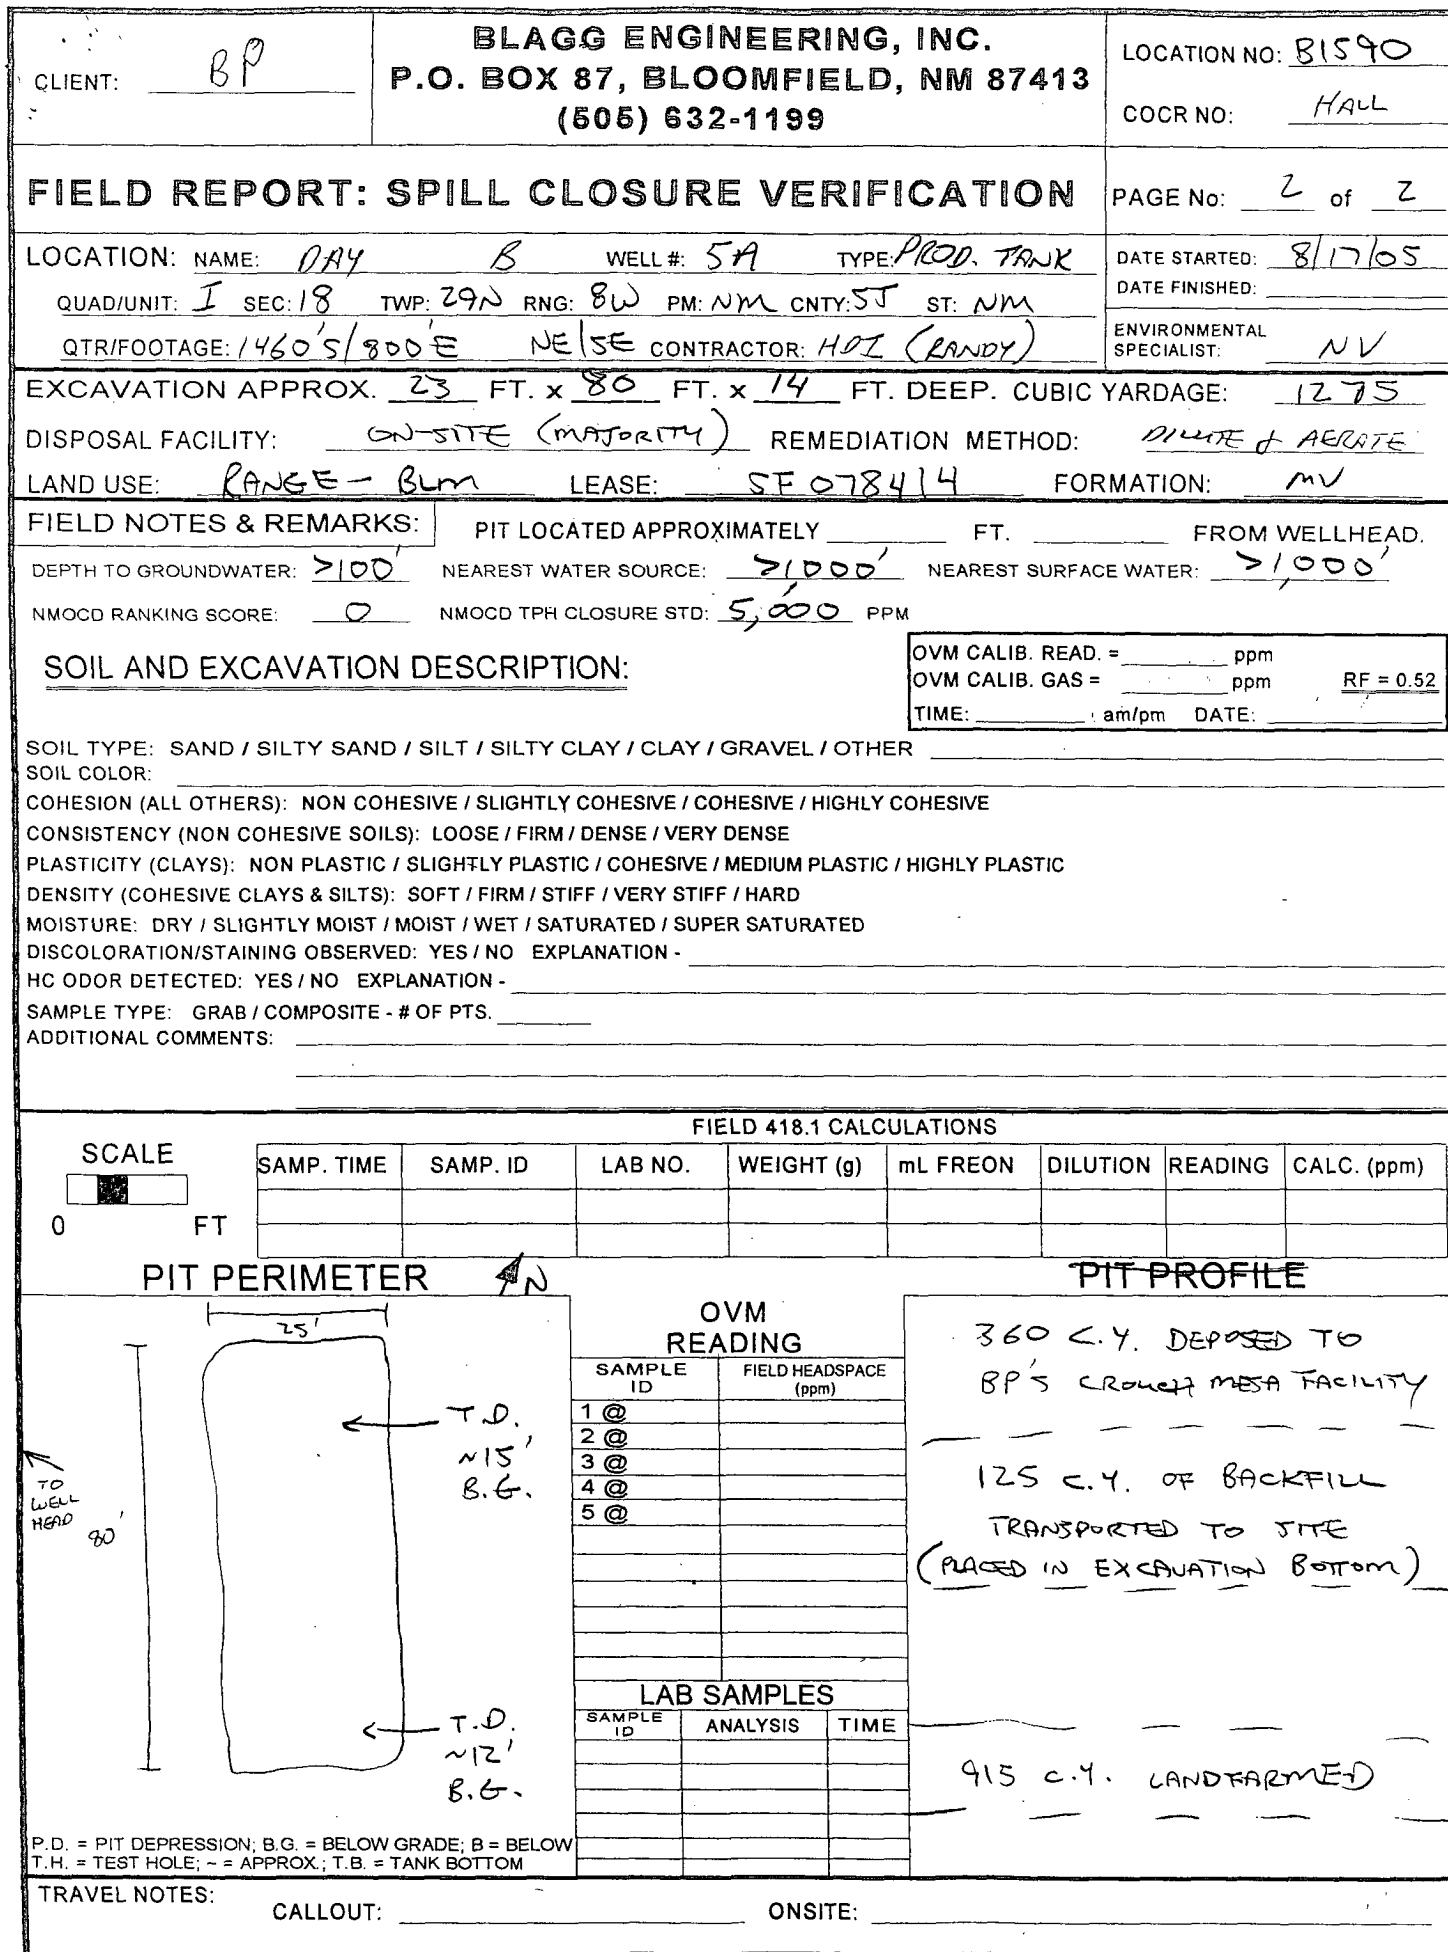 CLIENT: BP
BLAGG ENGINEERING, INC.
P.O. BOX 87, BLOOMFIELD, NM 87413
(505) 632-1199
LOCATION NO: B1590
COCR NO: HALL
FIELD REPORT: SPILL CLOSURE VERIFICATION
PAGE No: 2 of 2
LOCATION: NAME: DAY B WELL #: 5A TYPE: PROD. TANK
QUAD/UNIT: I SEC: 18 TWP: 29N RNG: 8W PM: NM CNTY: SJ ST: NM
QTR/FOOTAGE: 1460'S/800'E NE/SE CONTRACTOR: HDI (RANDY)
DATE STARTED: 8/17/05
DATE FINISHED:
ENVIRONMENTAL
SPECIALIST: NV
EXCAVATION APPROX. 23 FT. x 80 FT. x 14 FT. DEEP. CUBIC YARDAGE: 1275
DISPOSAL FACILITY: ON-SITE (MAJORITY) REMEDIATION METHOD: DILUTE & AERATE
LAND USE: RANGE - BLM LEASE: SF 078414 FORMATION: MV
FIELD NOTES & REMARKS: PIT LOCATED APPROXIMATELY FT. FROM WELLHEAD.
DEPTH TO GROUNDWATER: >100' NEAREST WATER SOURCE: >1000' NEAREST SURFACE WATER: >1,000'
NMOCD RANKING SCORE: 0 NMOCD TPH CLOSURE STD: 5,000 PPM
SOIL AND EXCAVATION DESCRIPTION:
OVM CALIB. READ. = ppm
OVM CALIB. GAS = ppm RF = 0.52
TIME: am/pm DATE:
SOIL TYPE: SAND / SILTY SAND / SILT / SILTY CLAY / CLAY / GRAVEL / OTHER
SOIL COLOR:
COHESION (ALL OTHERS): NON COHESIVE / SLIGHTLY COHESIVE / COHESIVE / HIGHLY COHESIVE
CONSISTENCY (NON COHESIVE SOILS): LOOSE / FIRM / DENSE / VERY DENSE
PLASTICITY (CLAYS): NON PLASTIC / SLIGHTLY PLASTIC / COHESIVE / MEDIUM PLASTIC / HIGHLY PLASTIC
DENSITY (COHESIVE CLAYS & SILTS): SOFT / FIRM / STIFF / VERY STIFF / HARD
MOISTURE: DRY / SLIGHTLY MOIST / MOIST / WET / SATURATED / SUPER SATURATED
DISCOLORATION/STAINING OBSERVED: YES / NO EXPLANATION -
HC ODOR DETECTED: YES / NO EXPLANATION -
SAMPLE TYPE: GRAB / COMPOSITE - # OF PTS.
ADDITIONAL COMMENTS:
FIELD 418.1 CALCULATIONS
SCALE
0 FT
SAMP. TIME SAMP. ID LAB NO. WEIGHT (g) mL FREON DILUTION READING CALC. (ppm)
PIT PERIMETER N
25'
TO
WELL
HEAD
80'
T.D.
~15'
B.G.
T.D.
~12'
B.G.
P.D. = PIT DEPRESSION; B.G. = BELOW GRADE; B = BELOW
T.H. = TEST HOLE; ~ = APPROX.; T.B. = TANK BOTTOM
OVM
READING
SAMPLE
ID
FIELD HEADSPACE
(ppm)
1 @
2 @
3 @
4 @
5 @
LAB SAMPLES
SAMPLE
ID
ANALYSIS
TIME
PIT PROFILE
360 C.Y. DEPOSED TO
BP'S CROUCH MESA FACILITY
125 C.Y. OF BACKFILL
TRANSPORTED TO SITE
(PLACED IN EXCAVATION BOTTOM)
915 C.Y. LANDFARMED
TRAVEL NOTES:
CALLOUT: ONSITE: